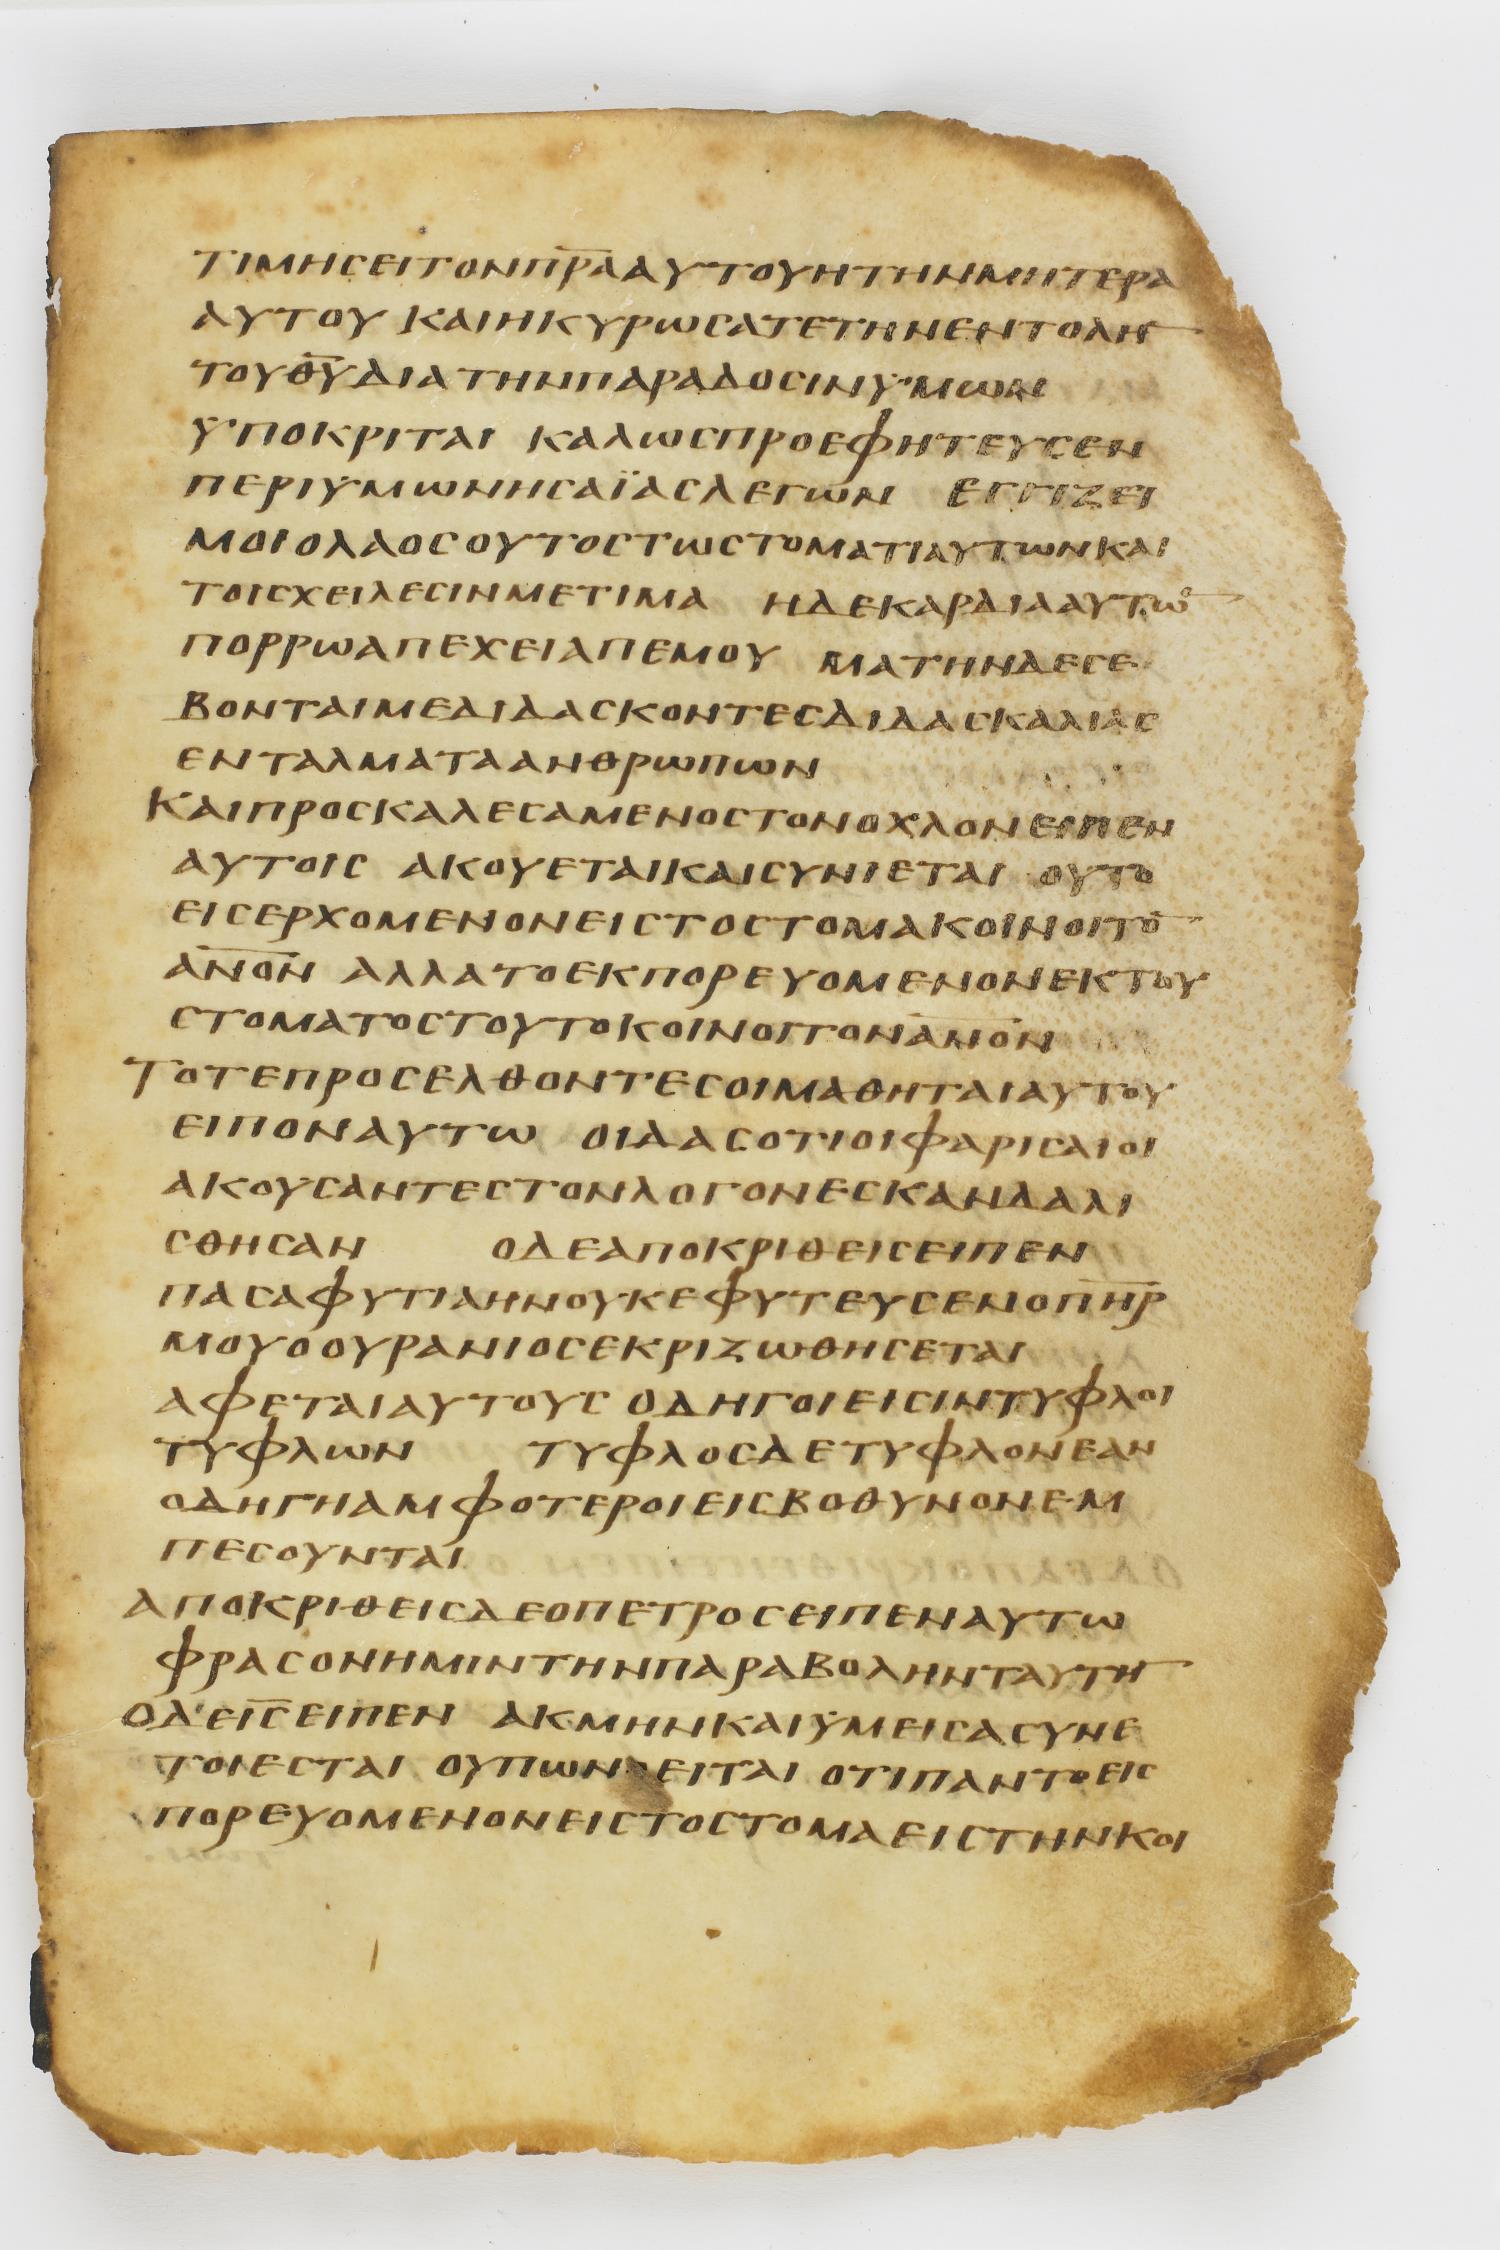 ΤΙΜΗϹΕΙΤΟΝΠ̅Ρ̅Α̅ΑΥΤΟΥΗΤΗΝΜΗΤΕΡΑ
ΑΥΤΟΥ ΚΑΙΗΚΥΡΩϹΑΤΕΤΗΝΕΝΤΟΛΗ̅
ΤΟΥΘ̅Υ̅ΔΙΑΤΗΝΠΑΡΑΔΟϹΙΝΥΜΩΝ
ΥΠΟΚΡΙΤΑΙ ΚΑΛΩϹΠΡΟΕΦΗΤΕΥϹΕΝ
ΠΕΡΙΥΜΩΝΗϹΑΪΑϹΛΕΓΩΝ ΕΓΓΙΖΕΙ
ΜΟΙΟΛΑΟϹΟΥΤΟϹΤΩϹΤΟΜΑΤΙΑΥΤΩΝΚΑΙ
ΤΟΙϹΧΕΙΛΕϹΙΝΜΕΤΙΜΑ ΗΔΕΚΑΡΔΙΑΑΥΤΩ̅
ΠΟΡΡΩΑΠΕΧΕΙΑΠΕΜΟΥ ΜΑΤΗΝΔΕϹΕ
ΒΟΝΤΑΙΜΕΔΙΔΑϹΚΟΝΤΕϹΔΙΔΑϹΚΑΛΙΑϹ
ΕΝΤΑΛΜΑΤΑΑΝΘΡΩΠΩΝ
ΚΑΙΠΡΟϹΚΑΛΕϹΑΜΕΝΟϹΤΟΝΟΧΛΟΝΕΙΠΕΝ
ΑΥΤΟΙϹ ΑΚΟΥΕΤΑΙΚΑΙϹΥΝΙΕΤΑΙ ΟΥΤΟ
ΕΙϹΕΡΧΟΜΕΝΟΝΕΙϹΤΟϹΤΟΜΑΚΟΙΝΟΙΤΟ̅
Α̅Ν̅Ο̅Ν ΑΛΛΑΤΟΕΚΠΟΡΕΥΟΜΕΝΟΝΕΚΤΟΥ
ϹΤΟΜΑΤΟϹΤΟΥΤΟΚΟΙΝΟΙΤΟΝΑ̅Ν̅Ο̅Ν
ΤΟΤΕΠΡΟϹΕΛΘΟΝΤΕϹΟΙΜΑΘΗΤΑΙΑΥΤΟΥ
ΕΙΠΟΝΑΥΤΩ ΟΙΔΑϹΟΤΙΟΙΦΑΡΙϹΑΙΟΙ
ΑΚΟΥϹΑΝΤΕϹΤΟΝΛΟΓΟΝΕϹΚΑΝΔΑΛΙ
ϹΘΗϹΑΝ ΟΔΕΑΠΟΚΡΙΘΕΙϹΕΙΠΕΝ
ΠΑϹΑΦΥΤΙΑΗΝΟΥΚΕΦΥΤΕΥϹΕΝΟΠ̅Η̅Ρ̅
ΜΟΥΟΟΥΡΑΝΙΟϹΕΚΡΙΖΩΘΗϹΕΤΑΙ
ΑΦΕΤΑΙΑΥΤΟΥϹΟΔΗΓΟΙΕΙϹΙΝΤΥΦΛΟΙ
ΤΥΦΛΩΝ ΤΥΦΛΟϹΔΕΤΥΦΛΟΝΕΑΝ
ΟΔΗΓΗΑΜΦΟΤΕΡΟΙΕΙϹΒΟΘΥΝΟΝΕΜ
ΠΕϹΟΥΝΤΑΙ
ΑΠΟΚΡΙΘΕΙϹΔΕΟΠΕΤΡΟϹΕΙΠΕΝΑΥΤΩ
ΦΡΑϹΟΝΗΜΙΝΤΗΝΠΑΡΑΒΟΛΗΝΤΑΥΤΗ̅
ΟΔΕΙ̅Ϲ̅ΕΙΠΕΝ ΑΚΜΗΝΚΑΙΥΜΕΙϹΑϹΥΝΕ
ΤΟΙΕϹΤΑΙ ΟΥΠΩΝΟΕΙΤΑΙ ΟΤΙΠΑΝΤΟΕΙϹ
ΠΟΡΕΥΟΜΕΝΟΝΕΙϹΤΟϹΤΟΜΑΕΙϹΤΗΝΚΟΙ